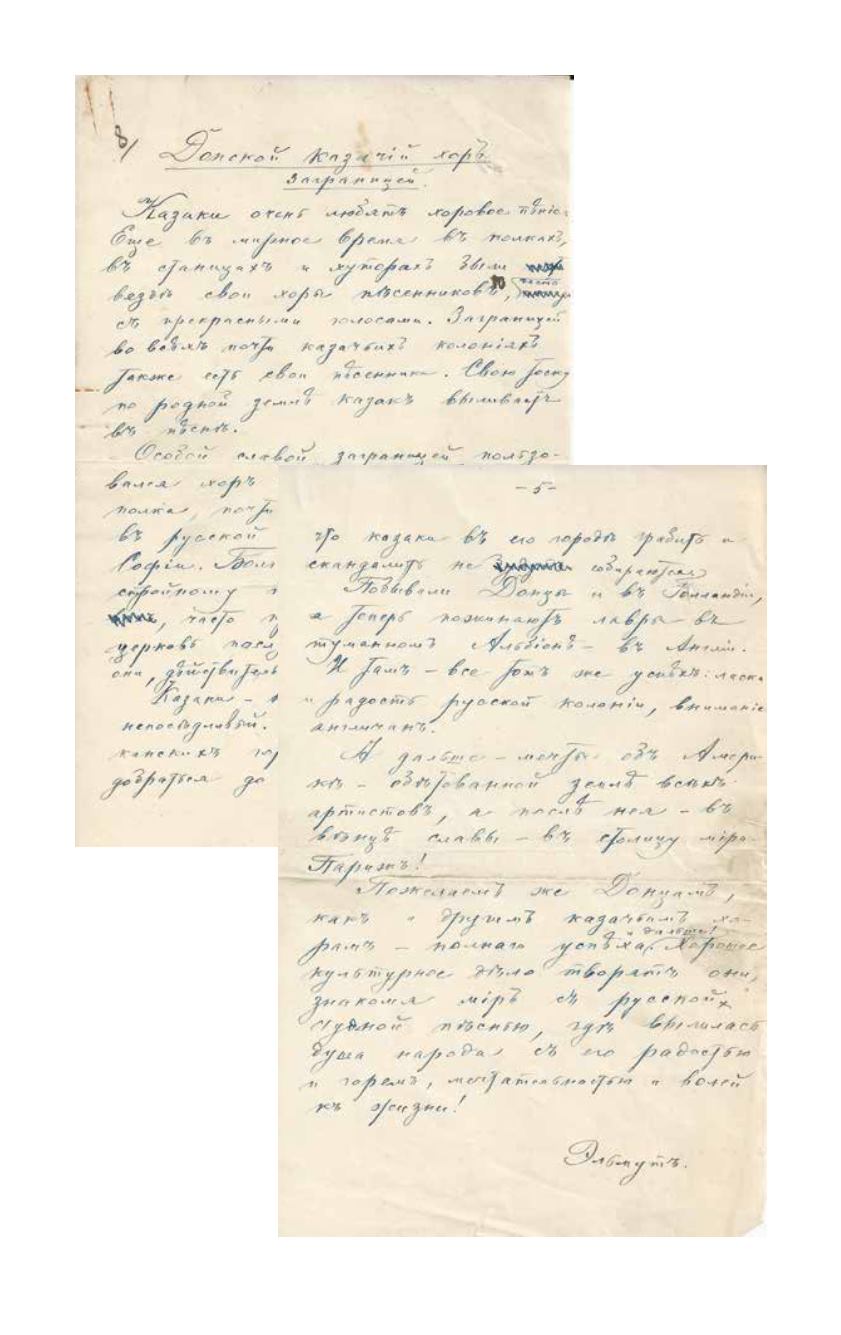 8/
Донской казачій хоръ
заграницей.
Казаки очень любятъ хоровое пѣніе
Еще въ мирное время въ полкахъ,
въ станицахъ и хуторахъ были
вездѣ свои хоры пѣсенниковъ, часто
съ прекрасными голосами. Заграницей
во всѣхъ почти казачьихъ колоніяхъ
также есть свои пѣсенники. Свою тоску
по родной землѣ казакъ выливаетъ
въ пѣснѣ.
Особой славой заграницей пользо-
вался хоръ
полка, почти
въ русской
Софіи. Болг
стройному
часто п
церковь посл
они, дѣйствитель
Казаки -
непосѣдливый.
канскихъ гор
добраться до
-5-
что казаки въ его городѣ грабить и
скандалить не собираются
Побывали Донцы и въ Голландіи,
а теперь пожинаютъ лавры въ
туманномъ Альбіонѣ - въ Англіи.
И тамъ - все тотъ же успѣхъ: ласка
и радость русской колоніи, вниманіе
англичанъ.
А дальше - мечты объ Амери-
кѣ - обѣтованной землѣ всѣхъ
артистовъ, а послѣ нея - въ
вѣнцѣ славы - въ столицу міра
Парижъ!
Пожелаемъ же Донцамъ,
какъ и другимъ казачьимъ хо-
рамъ - полнаго успѣха и дальше! Хорошее
культурное дѣло творятъ они,
знакомя міръ съ русской
чудной пѣснью, гдѣ вылилась
душа народа съ его радостью
и горемъ, мечтательностью и волей
къ жизни!
Эльмутъ.